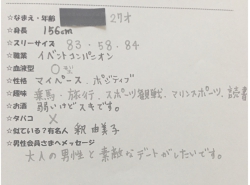 ☆なまえ・年齢 27才
☆身長 156cm
☆スリーサイズ 83・58・84
☆職業 イベントコンパニオン
☆血液型 O型
☆性格 マイペース、ポジティブ
☆趣味 乗馬・旅行、スポーツ観戦、マリンスポーツ、読書
☆お酒 弱いけどスキです。
☆タバコ ×
☆似ている有名人 釈由美子
☆男性会員さまへメッセージ
大人の男性と素敵なデートがしたいです。